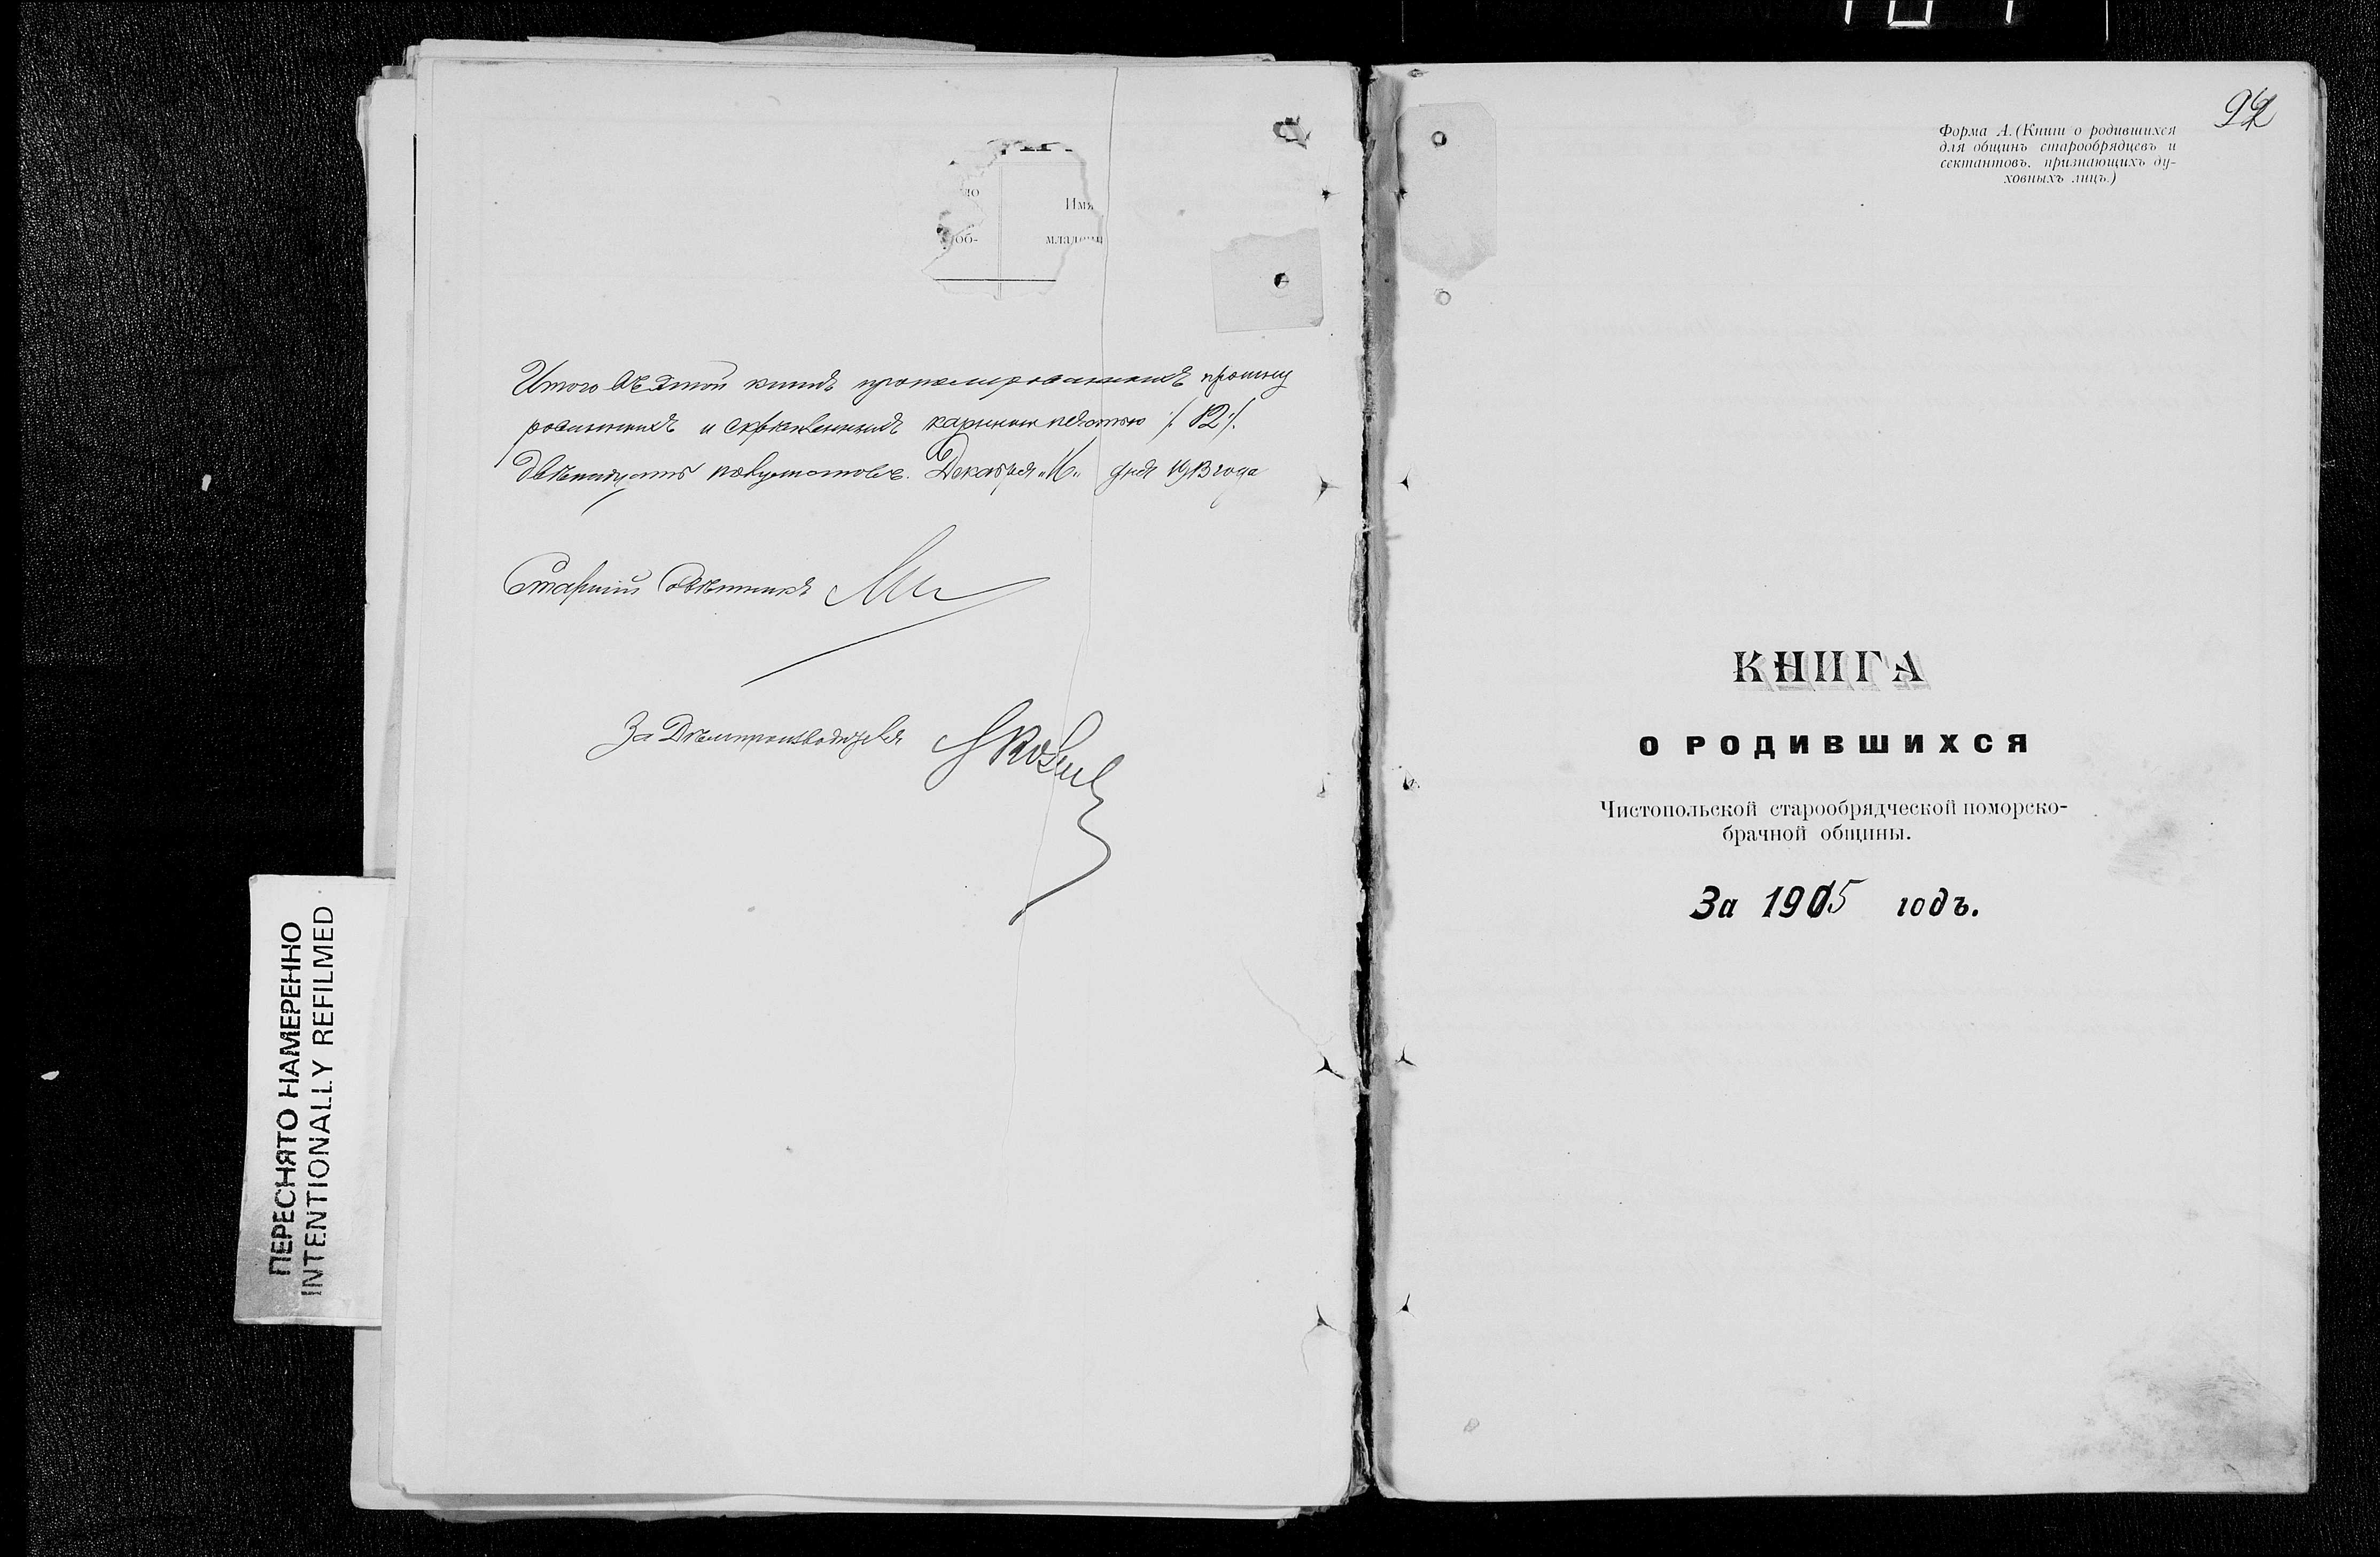 то
Имя
об-
младенц
Итого въ этой книгѣ пронумерованныхъ прошну
рованныхъ и скрѣпленныхъ казенною печатью /. 12 /.
двѣнадцать полулистовъ. Декабря „16„ дня 1913 года
Старшій Совѣтникъ
За Дѣлопроизводителя
ПЕРЕСНЯТО НАМЕРЕННО
INTENTIONALLY REFILMED
92
Форма А. (Книги о родившихся
для общинъ старообрядцевъ и
сектантовъ, признающихъ ду-
ховныхъ лицъ.)
КНИГА
О РОДИВШИХСЯ
Чистопольской старообрядческой поморско-
брачной общины.
За 1915 годъ.